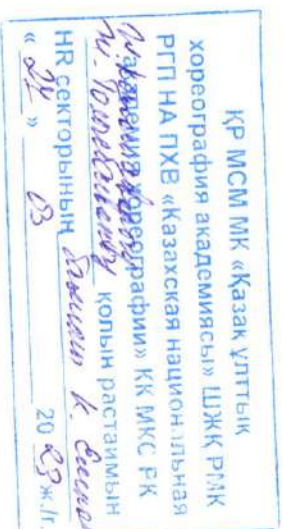 ҚР МСМ МК «Қазақ ұлттық
хореография академиясы» ШЖҚ РМК
РГП НА ПХВ «Казахская национальная
академия хореографии» КК МКС РК
қолын растаймын
HR секторының
« 27 » 03 20 23 ж./г.